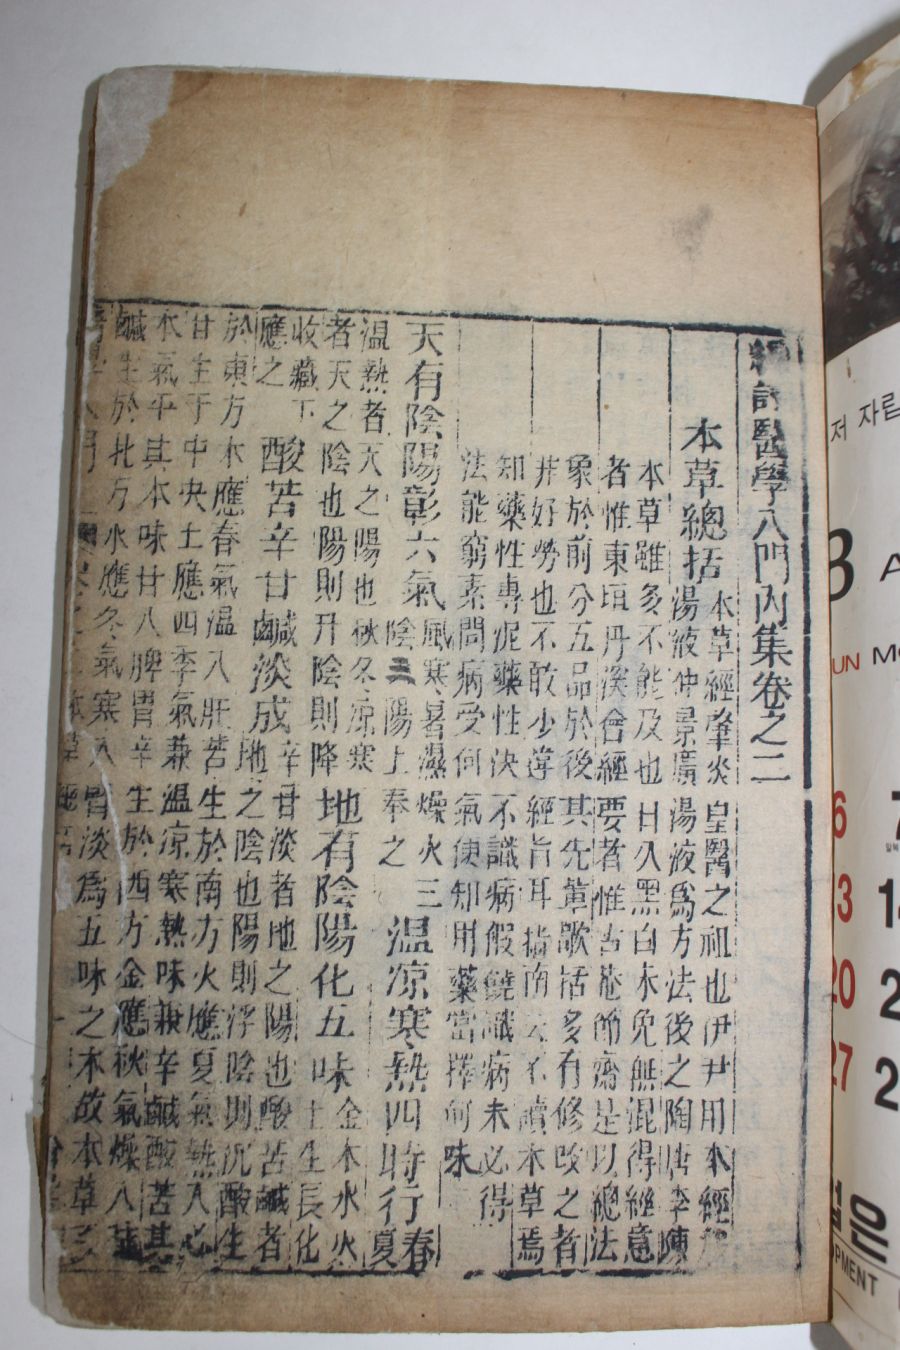 編註醫學入門內集卷之二
本草總括
本草經肇炎皇醫之祖也伊尹用本經
湯液仲景廣湯液爲方法後之陶唐李陳
本草雖多不能及也日久黑白未免無混得經意
者惟東垣丹溪會經要者惟古菴節齋是以總法
象於前分五品於後其先輩歌括多有修改之者
非好勞也不敢少違經旨耳指南云不讀本草焉
知藥性專泥藥性決不識病假饒識病未必得
法能窮素問病受何氣便知用藥當擇何味
天有陰陽彰六氣
風寒暑濕燥火三
陰三陽上奉之
溫凉寒熱四時行
春
夏
溫熱者天之陽也秋冬凉寒
者天之陰也陽則升陰則降
地有陰陽化五味
金木水火
土生長化
收藏下
應之
酸苦辛甘鹹淡成
辛甘淡者地之陽也酸苦鹹者
地之陰也陽則浮陰則沉酸生
於東方木應春氣溫入肝苦生於南方火應夏氣熱入心
甘生于中央土應四季氣兼溫凉寒熱味兼辛鹹酸苦其
本氣平其本味甘入脾胃辛生於西方金應秋氣燥入
鹹生於北方水應冬氣寒入腎淡爲五味之本故本草
저 자립
8
UN
6
13
20
27
은
OPMENT